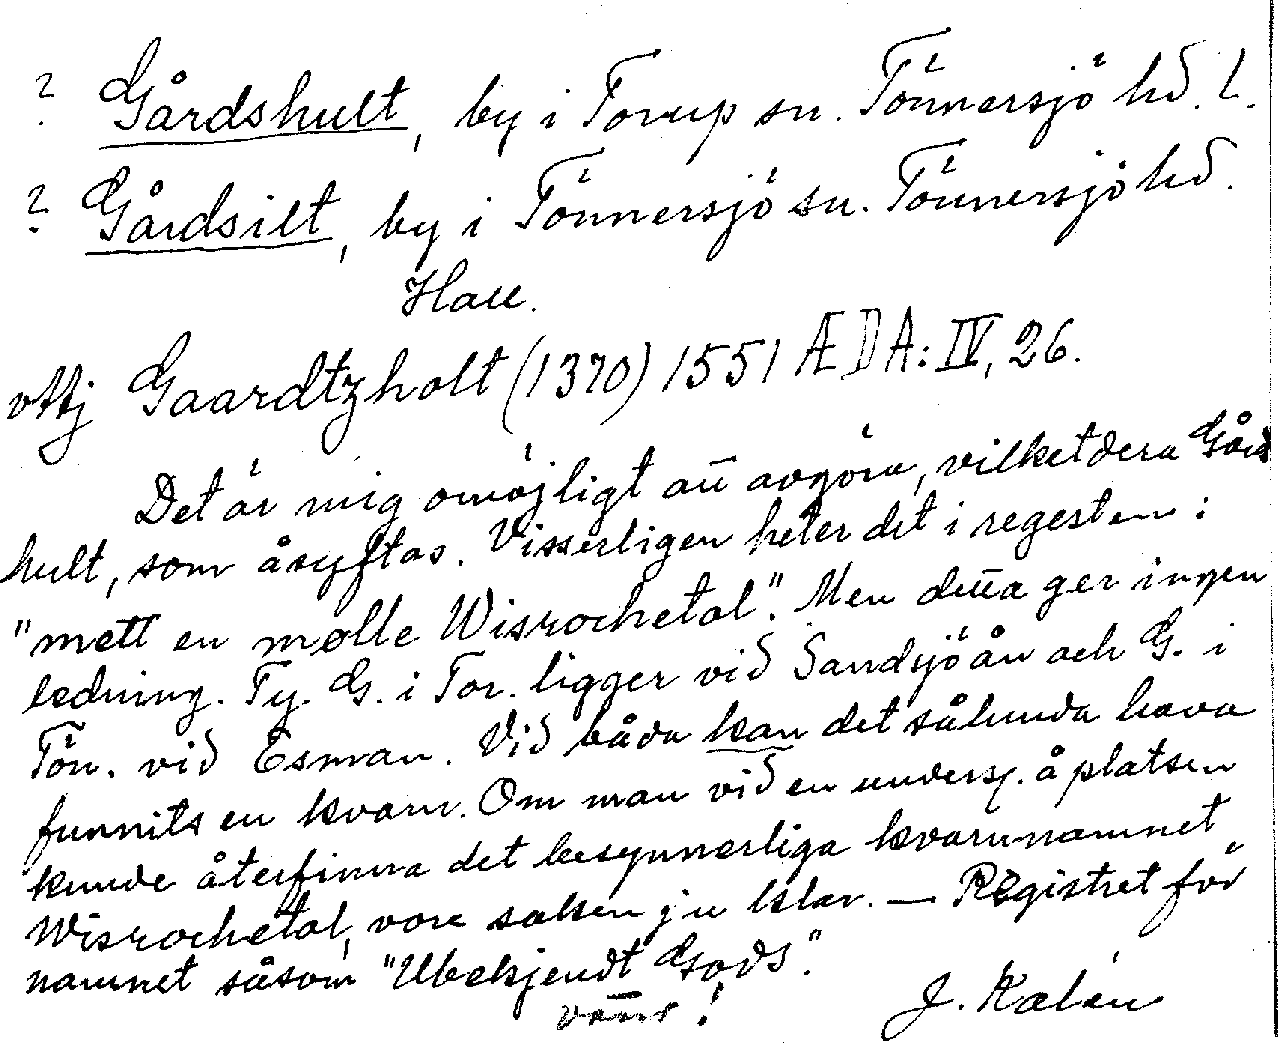 ? Gårdshult, by i Torup sn. Tönnersjö hd. l.
? Gårdsilt, by i Tönnersjö sn. Tönnersjö hd.
Hall.
Gaardtzholt (1370) 1551 ÆDA: IV, 26.
Det är mig omöjligt att avgöra, vilketdera Gårds
hult, som åsyftas. Visserligen heter det i regesten:
"mett en mølle Wisrochetal". Men detta ger ingen
ledning. Ty. G. i Tor. ligger vid Sandsjöån och G. i
Tön. vid Esman. Vid båda kan det sålunda hava
funnits en kvarn. Om man vid en undersj. å platsen
kunde återfinna det besynnerliga kvarnnamnet
Wisrochetal, vore saken ju klar. — Registret för
namnet såsom "Ubekjendt Gods".
J. Kalén